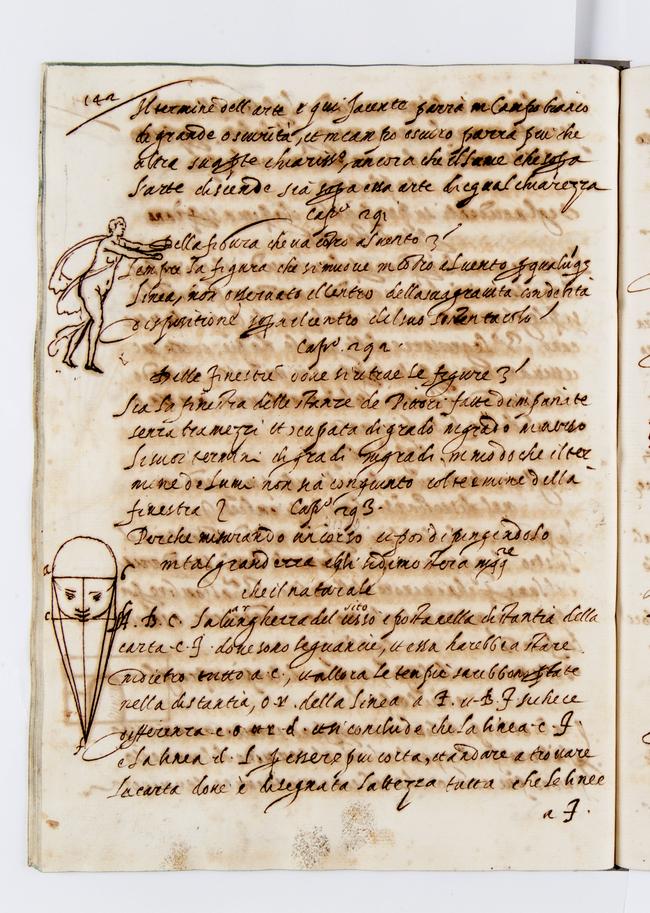 142
Il termine dell'arte e qui jacente parrà in campo bianco
di grande oscurità, et in campo oscuro parrà piu che
altra sua parte chiariss.o, ancora che il lume che sopra
l'arte discende sia sopra essa arte di egual chiarezza
Cap.o 291
Della figura che va contro al vento
Sempre la figura che si muove incontro al vento per qual
linea, non osserva il centro della sua gravità con debita
dispositione sopra il centro del suo sostentacolo
Cap.o 292.
Delle finestre dove si ritrae le figure
Sia la finestra delle stanze de Pittori fatte di impanate
senza tramezzi et occupata di grado in grado inverso
li suoi termini di gradi in gradi in modo che il ter-
mine de lumi non sia congiunto col termine della
finestra Cap.o 293.
Perche misurando un corso e poi dipingendolo
in tal grandezza egli si dimostrera magg.re
che il naturale
A. B. C. la lunghezza del viso e posta nella distantia della
carta c. f. dove sono le guancie, et essa harebbe a stare
indietro tutto a c, et allora le tempie sarebbon portate
nella distantia, o r. della linea a f. et B. f si che ce
differenza c. o et r. d. et si conclude che la linea c. f.
e la linea d. f. per essere piu corta, et andare a trovare
la carta dove è disegnata l'altezza tutta che le linee
a f.
a
c
f